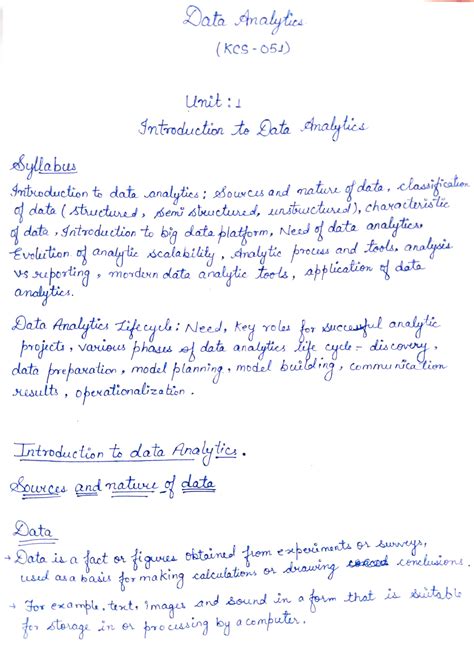 Data Analytics
(KCS-051)
Unit : 1
Introduction to Data Analytics
Syllabus
Introduction to data analytics : Sources and nature of data, classification
of data (structured, semi structured, unstructured), characteristic
of data, Introduction to big data platform, Need of data analytics,
Evolution of analytic scalability, Analytic process and tools, analysis
vs reporting, mordern data analytic tools, application of data
analytics.
Data Analytics Lifecycle : Need, key roles for successful analytic
projects, various phases of data analytics life cycle - discovery,
data preparation, model planning, model building, communication
results, operationalization.
Introduction to data Analytics.
Sources and nature of data
Data
→ Data is a fact or figures obtained from experiments or surveys,
used as a basis for making calculations or drawing conclusions.
→ For example, text, images and sound in a form that is suitable
for storage in or processing by a computer.